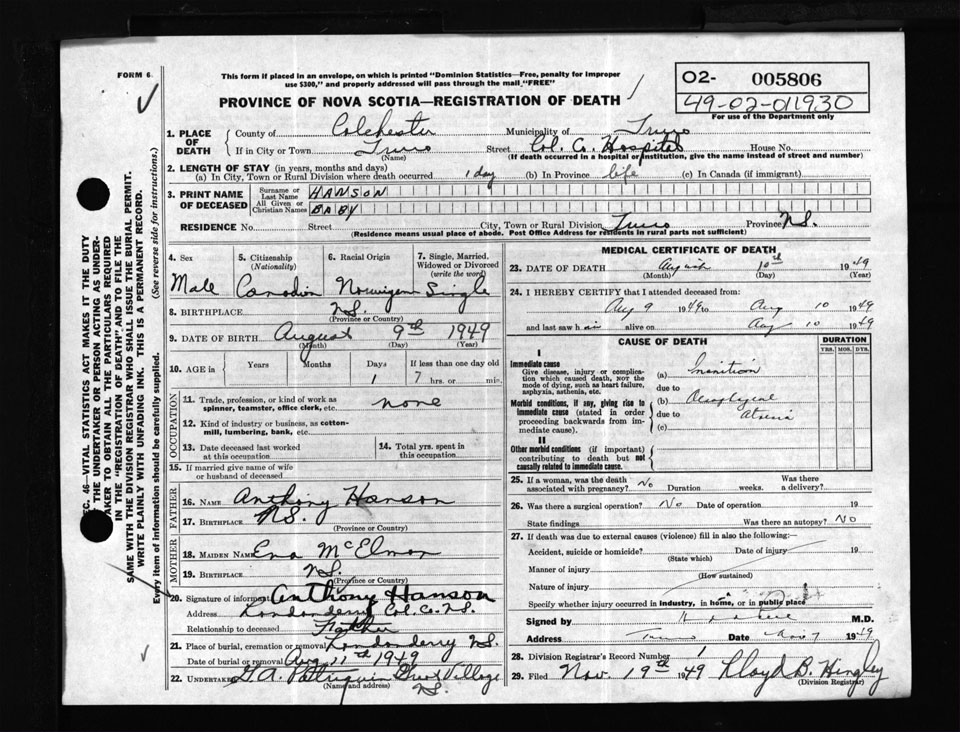 FORM 6
This form if placed in an envelope, on which is printed "Dominion Statistics—Free, penalty for improper
use $300," and properly addressed will pass through the mail "FREE"
PROVINCE OF NOVA SCOTIA—REGISTRATION OF DEATH
02- 005806
49-02-011930
For use of the Department only
SEC. 46—VITAL STATISTICS ACT MAKES IT THE DUTY
THE UNDERTAKER OR PERSON ACTING AS UNDER-
TAKER TO OBTAIN ALL THE PARTICULARS REQUIRED
IN THE "REGISTRATION OF DEATH" AND TO FILE THE
SAME WITH THE DIVISION REGISTRAR WHO SHALL ISSUE THE BURIAL PERMIT.
WRITE PLAINLY WITH UNFADING INK. THIS IS A PERMANENT RECORD.
Every item of information should be carefully supplied. (See reverse side for instructions.)
1. PLACE OF DEATH County of Colchester Municipality of Truro
If in City or Town Truro Street Col. Co. Hospital House No.
(Name) (If death occurred in a hospital or institution, give the name instead of street and number)
2. LENGTH OF STAY (in years, months and days)
(a) In City, Town or Rural Division where death occurred 1 day (b) In Province life (c) In Canada (if immigrant)
3. PRINT NAME OF DECEASED Surname or Last Name HANSON
All Given or Christian Names BABY
RESIDENCE No. Street City, Town or Rural Division Truro Province N.S.
(Residence means usual place of abode. Post Office Address for residents in rural parts not sufficient)
4. Sex 5. Citizenship (Nationality) 6. Racial Origin 7. Single, Married, Widowed or Divorced (write the word)
Male Canadin Norwigen Single
8. BIRTHPLACE N.S.
(Province or Country)
9. DATE OF BIRTH August 9th 1949
(Month) (Day) (Year)
10. AGE in Years Months Days If less than one day old
1 7 hrs. or min.
OCCUPATION
11. Trade, profession, or kind of work as spinner, teamster, office clerk, etc. none
12. Kind of industry or business, as cotton-mill, lumbering, bank, etc.
13. Date deceased last worked at this occupation 14. Total yrs. spent in this occupation
15. If married give name of wife or husband of deceased
FATHER
16. NAME Anthony Hanson
17. BIRTHPLACE N.S.
(Province or Country)
MOTHER
18. MAIDEN NAME McElmon
19. BIRTHPLACE N.S.
(Province or Country)
20. Signature of informant Anthony Hanson
Address Londonderry Col. Co. N.S.
Relationship to deceased Father
21. Place of burial, cremation or removal Londonderry N.S.
Date of burial or removal Aug 11th 1949
22. UNDERTAKER G.A. Village N.S.
(Name and address)
MEDICAL CERTIFICATE OF DEATH
23. DATE OF DEATH August 10th 1949
(Month) (Day) (Year)
24. I HEREBY CERTIFY that I attended deceased from:
Aug 9 1949 to Aug 10 1949
and last saw him alive on Aug 10 1949
CAUSE OF DEATH DURATION
YRS. MOS. DYS.
I
Immediate cause
Give disease, injury or complication which caused death, NOT the mode of dying, such as heart failure, asphyxia, asthenia, etc.
(a) Inanition
due to
Morbid conditions, if any, giving rise to immediate cause (stated in order proceeding backwards from immediate cause).
(b)
due to
(c)
II
Other morbid conditions (if important) contributing to death but not causally related to immediate cause.
25. If a woman, was the death associated with pregnancy? No Duration weeks. Was there a delivery?
26. Was there a surgical operation? No Date of operation 19
State findings Was there an autopsy? No
27. If death was due to external causes (violence) fill in also the following:—
Accident, suicide or homicide? Date of injury 19
(State which)
Manner of injury
(How sustained)
Nature of injury
Specify whether injury occurred in industry, in home, or in public place
Signed by M.D.
Address Truro Date Nov 7 1949
28. Division Registrar's Record Number 1
29. Filed Nov. 19th 1949 Lloyd B. Hingley
(Division Registrar)